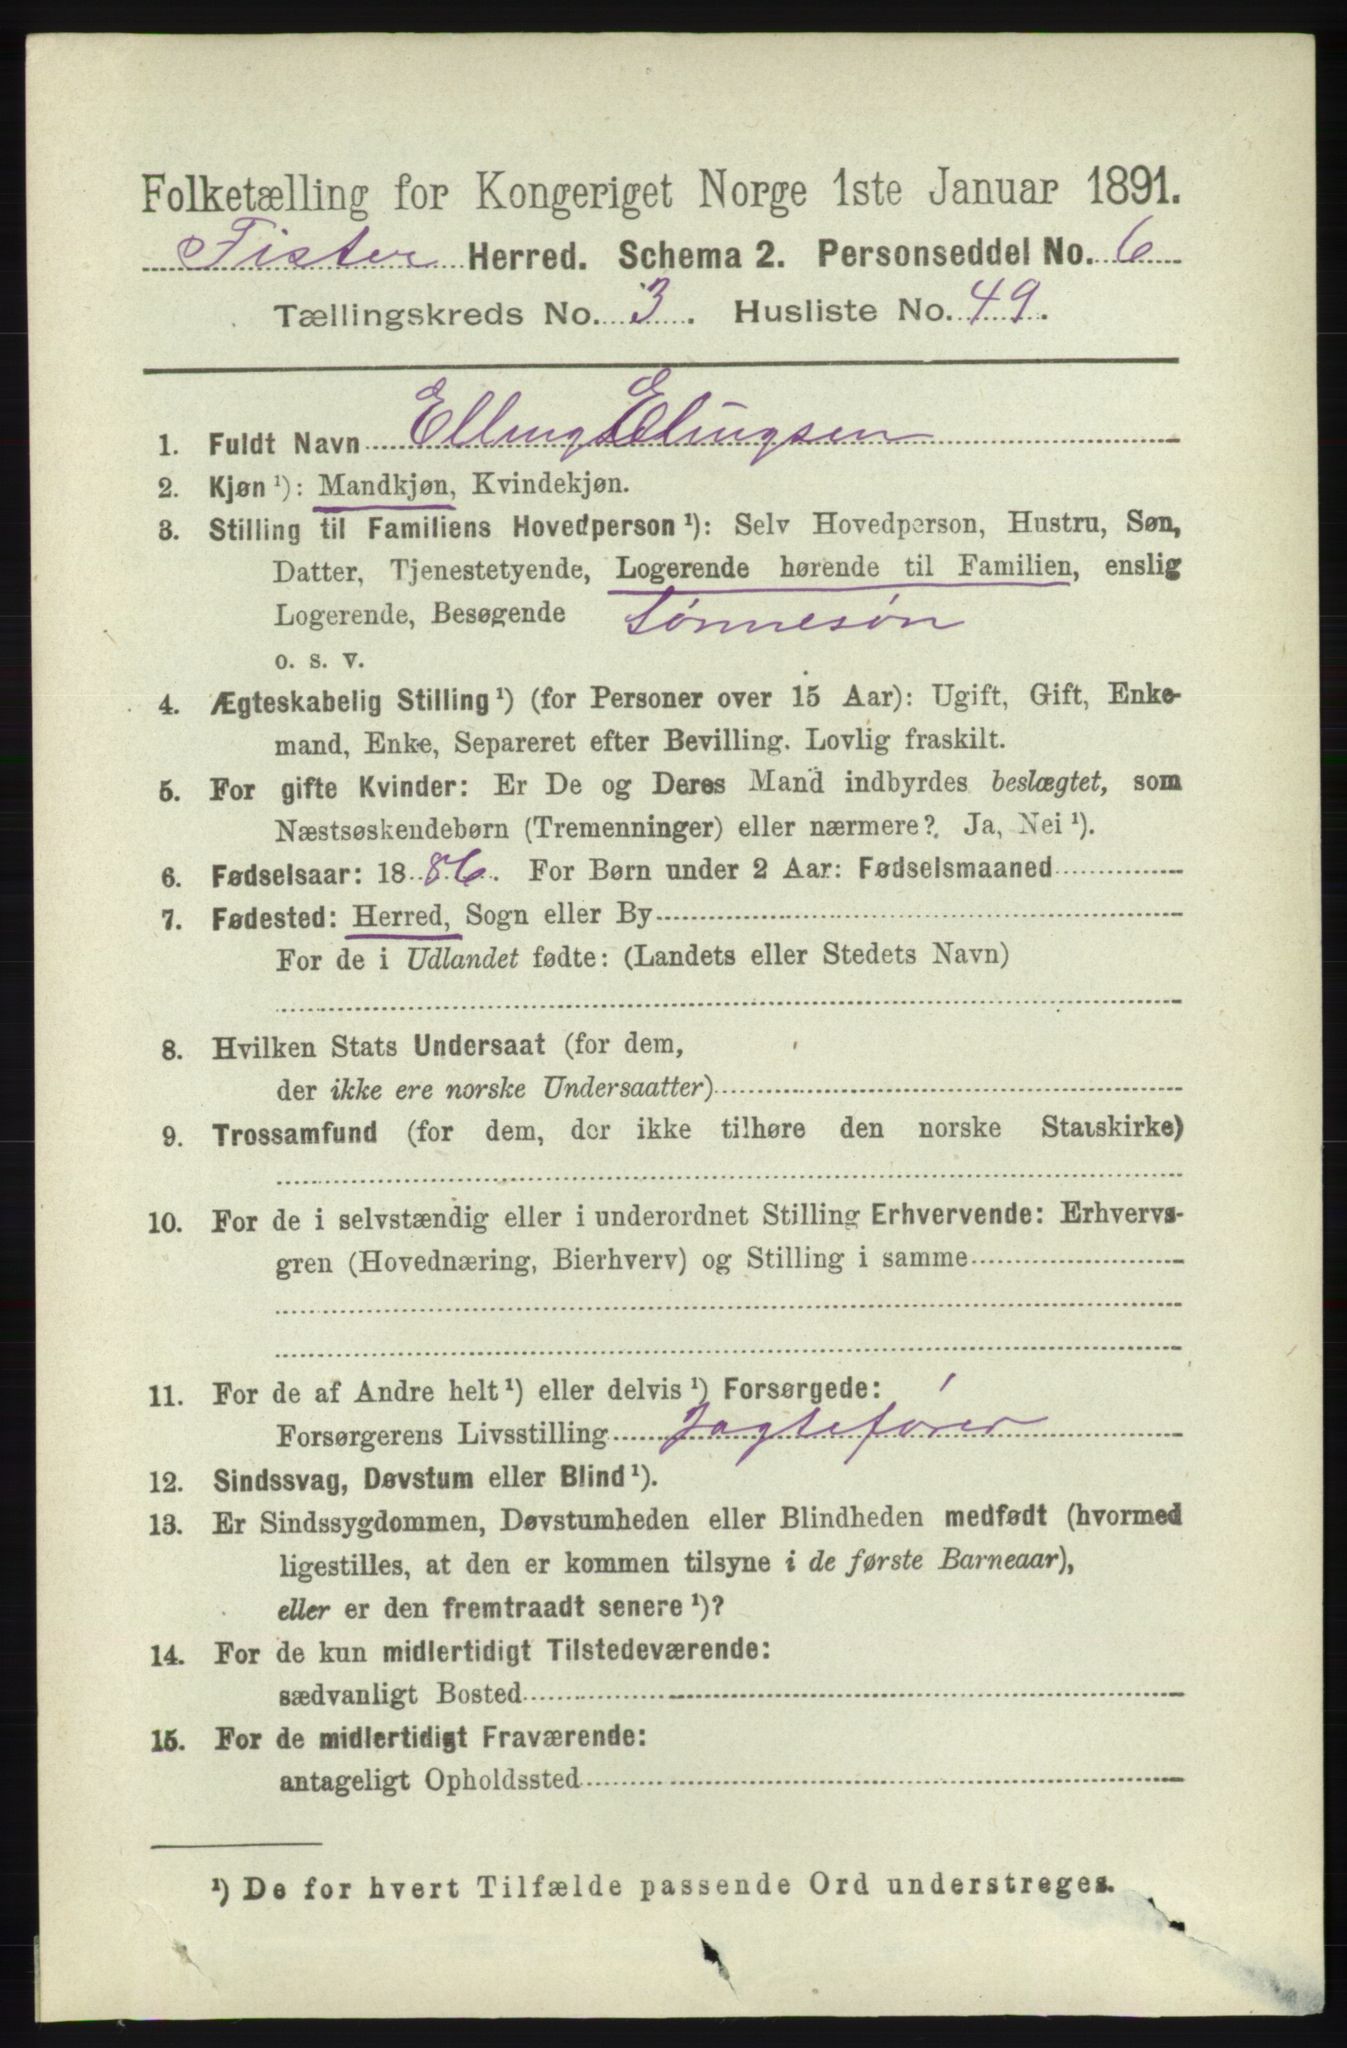 Folketælling for Kongeriget Norge 1ste Januar 1891.
Fister Herred. Schema 2. Personseddel No. 6
Tællingskreds No. 3. Husliste No. 49.
1. Fuldt Navn Elling Elingsen
2. Kjøn ¹): Mandkjøn, Kvindekjøn.
3. Stilling til Familiens Hovedperson ¹): Selv Hovedperson, Hustru, Søn,
Datter, Tjenestetyende, Logerende hørende til Familien, enslig
Logerende, Besøgende Sønnesøn
o. s. v.
4. Ægteskabelig Stilling ¹) (for Personer over 15 Aar): Ugift, Gift, Enke-
mand, Enke, Separeret efter Bevilling. Lovlig fraskilt.
5. For gifte Kvinder: Er De og Deres Mand indbyrdes beslægtet, som
Næstsøskendebørn (Tremenninger) eller nærmere? Ja, Nei ¹).
6. Fødselsaar: 1886. For Børn under 2 Aar: Fødselsmaaned
7. Fødested: Herred, Sogn eller By
For de i Udlandet fødte: (Landets eller Stedets Navn)
8. Hvilken Stats Undersaat (for dem,
der ikke ere norske Undersaatter)
9. Trossamfund (for dem, der ikke tilhøre den norske Statskirke)
10. For de i selvstændig eller i underordnet Stilling Erhvervende: Erhvervs-
gren (Hovednæring, Bierhverv) og Stilling i samme
11. For de af Andre helt ¹) eller delvis ¹) Forsørgede:
Forsørgerens Livsstilling Jagtefører
12. Sindssvag, Døvstum eller Blind ¹).
13. Er Sindssygdommen, Døvstumheden eller Blindheden medfødt (hvormed
ligestilles, at den er kommen tilsyne i de første Barneaar),
eller er den fremtraadt senere ¹)?
14. For de kun midlertidigt Tilstedeværende:
sædvanligt Bosted
15. For de midlertidigt Fraværende:
antageligt Opholdssted
¹) De for hvert Tilfælde passende Ord understreges.